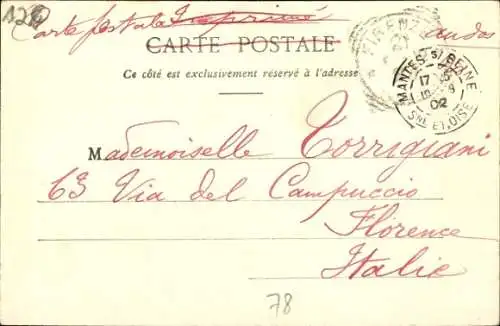 120
Carte postale Imprimé
CARTE POSTALE
Ce côté est exclusivement réservé à l'adresse
FIRENZE
MANTES S/ SEINE
17
02
SNE ET OISE
Mademoiselle Torrigiani
63 Via del Campuccio
Florence
Italie
78